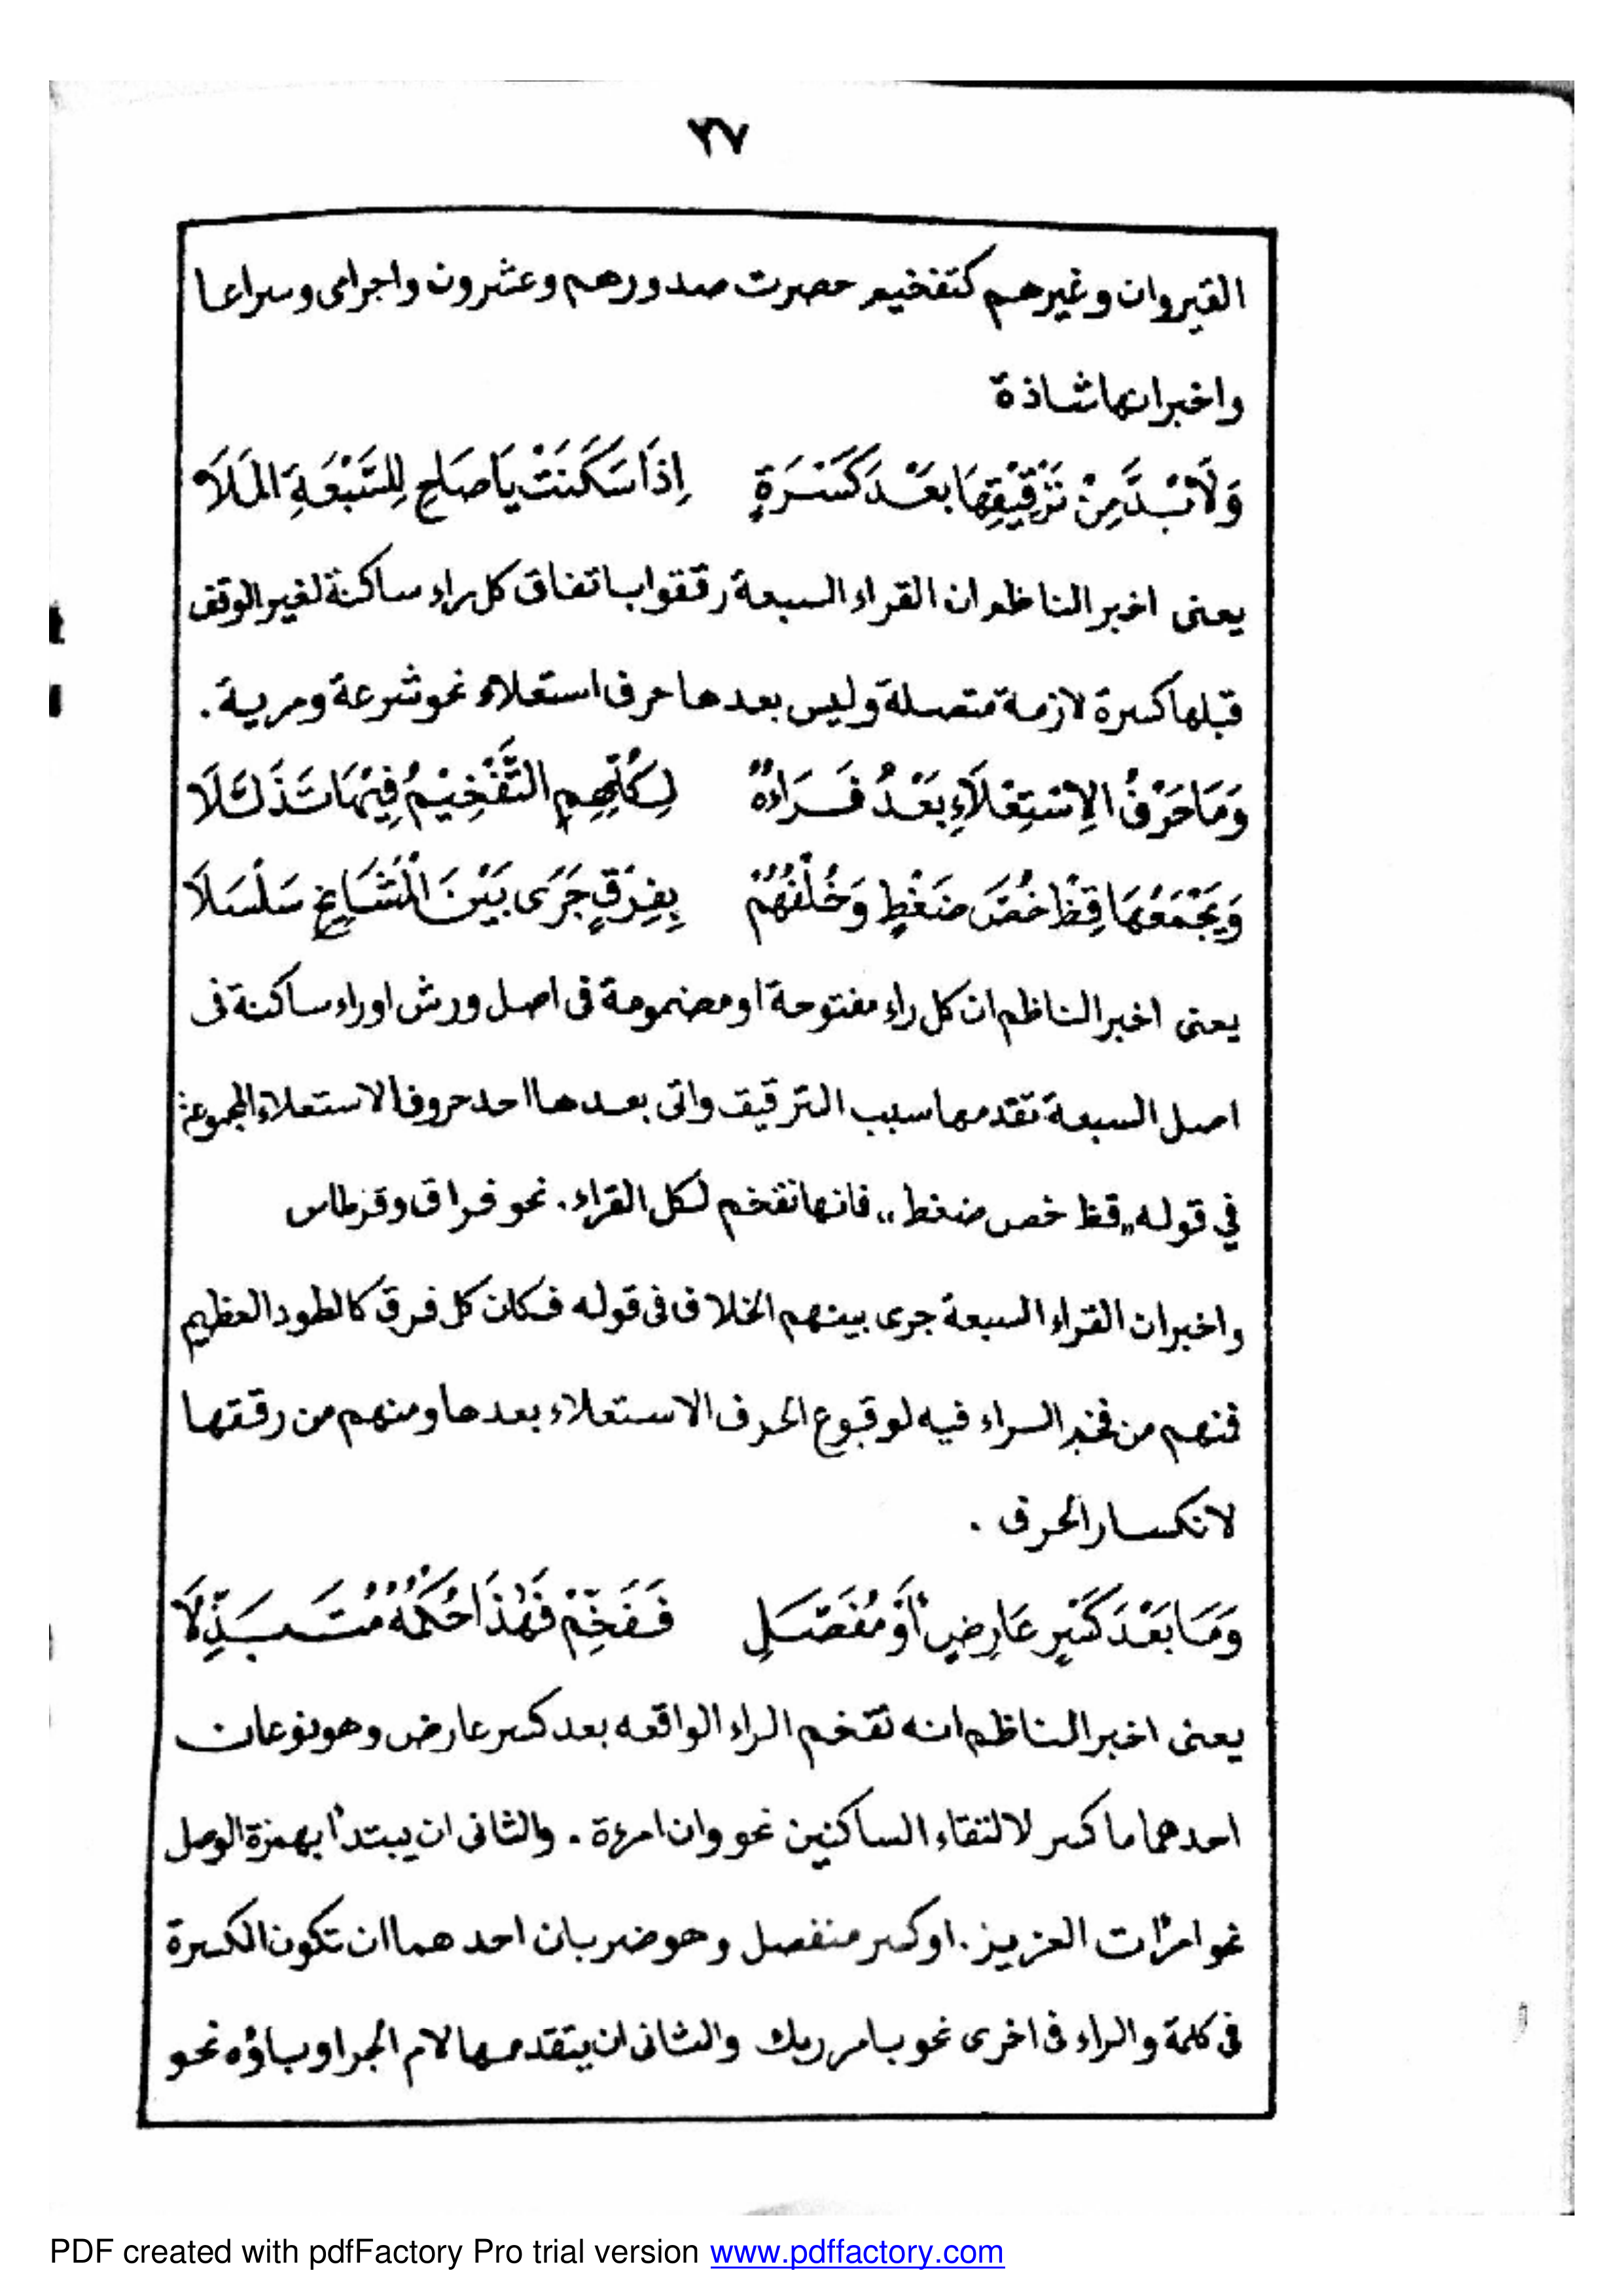 ٢٧
القيروان وغيرهم كتفخيم حصرت صدورهم وعشرون واجرامى وسراعا
واخبر انها شاذة
وَلَابُدَّ مِنْ تَرْقِيْقِهَا بَعْدَ كَسْرَةٍ اِذَا سَكَنَتْ يَا صَاحِ لِلسَّبْعَةِ الْمَلَا
يعنى اخبر الناظم ان القراء السبعة رققوا باتفاق كل راء ساكنة لغير الوقف
قبلها كسرة لازمة متصلة وليس بعدها حرف استعلاء نحو شرعة ومرية .
وَمَا حَرْفُ الاِسْتِعْلَاءِ بَعْدُ فَرَاءُهٗ لِكُلِّهِمِ التَّفْخِيْمُ فِيْهَا تَذَلَّلَا
وَيَجْمَعُهَا قِظْ خُصَّ ضَغْطٍ وَخُلْفُهُمْ بِفِرْقٍ جَرَى بَيْنَ الْمَشَايِخِ سَلْسَلَا
يعنى اخبر الناظم ان كل راء مفتوحة او مضمومة فى اصل ورش او راء ساكنة فى
اصل السبعة تقدمها سبب الترقيق واتى بعدها احد حروف الاستعلاء المجموعة
في قوله „قظ خص ضغط„ فانها تفخم لكل القراء. نحو فراق وقرطاس
واخبر ان القراء السبعة جرى بينهم الخلاف فى قوله فكان كل فرق كالطود العظيم
فمنهم من فخم الراء فيه لوقوع الحرف الاستعلاء بعدها ومنهم من رققها
لانكسار الحرف .
وَمَا بَعْدَ كَسْرٍ عَارِضٍ اَوْ مُفَصَّلٍ فَفَخِّمْ فَهٰذَا حُكْمُهُ مُتَبَذِّلَا
يعنى اخبر الناظم انه تفخم الراء الواقعه بعد كسر عارض وهو نوعان
احدهما ما كسر لالتقاء الساكنين نحو وان امرءة . والثانى ان يبتدأ بهمزة الوصل
نحو امرأت العزيز. او كسر منفصل وهو ضربان احدهما ان تكون الكسرة
فى كلمة والراء فى اخرى نحو بامر ربك والثانى ان يتقدمها لام الجر او باؤه نحو
PDF created with pdfFactory Pro trial version www.pdffactory.com